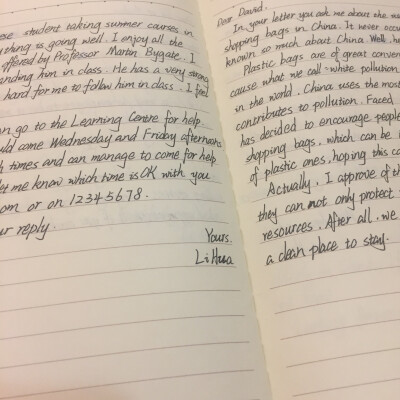 ese student taking summer courses in
thing is going well. I enjoy all the
offered by Professor Martin Bygate. I
anding him in class. He has a very strong
hard for me to follow him in class. I feel
n go to the Learning Centre for help.
uld come Wednesday and Friday afternoons
h times and can manage to come for help.
et me know which time is OK with you
om or on 12345678.
ur reply.
Yours.
Li Hua
Dear David.
In your letter you ask me about the
shopping bags in China. It never occu
known so much about China. Well, he
Plastic bags are of great conven
cause what we call "white pollution
in the world. China uses the most
contributes to pollution. Faced
has decided to encourage people
shopping bags, which can be
of plastic ones, hoping this co
Actually, I approve of th
they can not only protect
resources. After all, we
a clean place to stay.